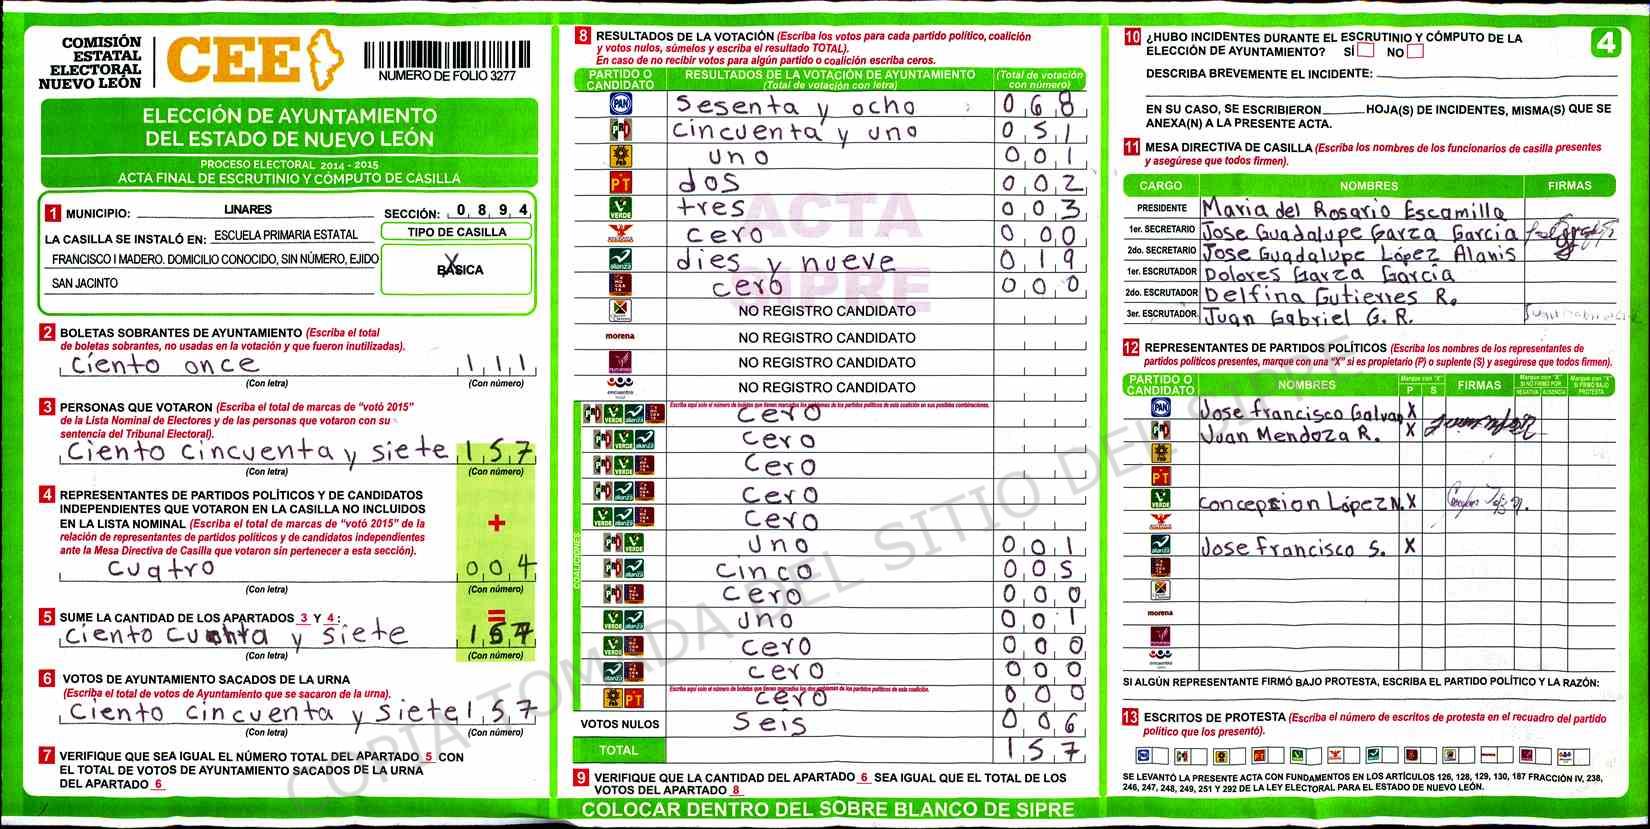 COMISIÓN
ESTATAL
ELECTORAL
NUEVO LEÓN
CEE
NUMERO DE FOLIO 3277
ELECCIÓN DE AYUNTAMIENTO
DEL ESTADO DE NUEVO LEÓN
PROCESO ELECTORAL 2014 - 2015
ACTA FINAL DE ESCRUTINIO Y CÓMPUTO DE CASILLA
1 MUNICIPIO: LINARES SECCIÓN: 0 8 9 4
LA CASILLA SE INSTALÓ EN: ESCUELA PRIMARIA ESTATAL
FRANCISCO I MADERO. DOMICILIO CONOCIDO, SIN NÚMERO, EJIDO
SAN JACINTO
TIPO DE CASILLA
BÁSICA
2 BOLETAS SOBRANTES DE AYUNTAMIENTO (Escriba el total
de boletas sobrantes, no usadas en la votación y que fueron inutilizadas).
Ciento once 1 1 1
(Con letra) (Con número)
3 PERSONAS QUE VOTARON (Escriba el total de marcas de "votó 2015"
de la Lista Nominal de Electores y de las personas que votaron con su
sentencia del Tribunal Electoral).
Ciento Cincuenta y siete 1 5 7
(Con letra) (Con número)
4 REPRESENTANTES DE PARTIDOS POLÍTICOS Y DE CANDIDATOS
INDEPENDIENTES QUE VOTARON EN LA CASILLA NO INCLUIDOS
EN LA LISTA NOMINAL (Escriba el total de marcas de "votó 2015" de la
relación de representantes de partidos políticos y de candidatos independientes
ante la Mesa Directiva de Casilla que votaron sin pertenecer a esta sección).
+
Cuatro 0 0 4
(Con letra) (Con número)
=
5 SUME LA CANTIDAD DE LOS APARTADOS 3 Y 4:
Ciento y siete
(Con letra) (Con número)
6 VOTOS DE AYUNTAMIENTO SACADOS DE LA URNA
(Escriba el total de votos de Ayuntamiento que se sacaron de la urna).
Ciento cincuenta y siete 1 5 7
(Con letra) (Con número)
7 VERIFIQUE QUE SEA IGUAL EL NÚMERO TOTAL DEL APARTADO 5 CON
EL TOTAL DE VOTOS DE AYUNTAMIENTO SACADOS DE LA URNA
DEL APARTADO 6
8 RESULTADOS DE LA VOTACIÓN (Escriba los votos para cada partido político, coalición
y votos nulos, súmelos y escriba el resultado TOTAL).
En caso de no recibir votos para algún partido o coalición escriba ceros.
PARTIDO O CANDIDATO RESULTADOS DE LA VOTACIÓN DE AYUNTAMIENTO (Total de votación con letra) (Total de votación con número)
PAN Sesenta y ocho 0 6 8
PRI Cincuenta y uno 0 5 1
PRD uno 0 0 1
PT dos 0 0 2
VERDE tres 0 0 3
cero 0 0 0
alianza dies y nueve 0 1 9
cero 0 0 0
NO REGISTRO CANDIDATO
morena NO REGISTRO CANDIDATO
NO REGISTRO CANDIDATO
encuentro NO REGISTRO CANDIDATO
ACTA
SIPRE
COALICIONES
PRI VERDE alianza cero
PRI VERDE alianza Cero
PRI VERDE Cero
PRI alianza Cero
VERDE alianza Cero
PRI VERDE uno 0 0 1
PRI alianza Cinco 0 0 5
PRI Cero 0 0 0
VERDE alianza uno 0 0 1
VERDE cero 0 0 0
alianza cero 0 0 0
PRD PT cero 0 0 0
VOTOS NULOS Seis 0 0 6
TOTAL 1 5 7
9 VERIFIQUE QUE LA CANTIDAD DEL APARTADO 6 SEA IGUAL QUE EL TOTAL DE LOS
VOTOS DEL APARTADO 8
COLOCAR DENTRO DEL SOBRE BLANCO DE SIPRE
COPIA TOMADA DEL SITIO DEL SIPRE
4
10 ¿HUBO INCIDENTES DURANTE EL ESCRUTINIO Y CÓMPUTO DE LA
ELECCIÓN DE AYUNTAMIENTO? SÍ NO
DESCRIBA BREVEMENTE EL INCIDENTE:
EN SU CASO, SE ESCRIBIERON HOJA(S) DE INCIDENTES, MISMA(S) QUE SE
ANEXA(N) A LA PRESENTE ACTA.
11 MESA DIRECTIVA DE CASILLA (Escriba los nombres de los funcionarios de casilla presentes
y asegúrese que todos firmen).
CARGO NOMBRES FIRMAS
PRESIDENTE Maria del Rosario Escamilla
1er. SECRETARIO Jose Guadalupe Garza Garcia
2do. SECRETARIO Jose Guadalupe López Alanis
1er. ESCRUTADOR Dolores Garza García
2do. ESCRUTADOR Delfina Gutierres R.
3er. ESCRUTADOR Juan Gabriel G. R.
12 REPRESENTANTES DE PARTIDOS POLÍTICOS (Escriba los nombres de los representantes de
partidos políticos presentes, marque con una "X" si es propietario (P) o suplente (S) y asegúrese que todos firmen).
PARTIDO O CANDIDATO NOMBRES Marque con "X" P S FIRMAS Marque con "X" SI NO FIRMÓ POR NEGATIVA AUSENCIA Marque con "X" SI FIRMÓ BAJO PROTESTA
PAN Jose francisco Galvan X
PRI Juan Mendoza R. X
PRD
PT
VERDE Concepsion López N. X
alianza Jose francisco S. X
morena
encuentro
SI ALGÚN REPRESENTANTE FIRMÓ BAJO PROTESTA, ESCRIBA EL PARTIDO POLÍTICO Y LA RAZÓN:
13 ESCRITOS DE PROTESTA (Escriba el número de escritos de protesta en el recuadro del partido
político que los presentó).
SE LEVANTÓ LA PRESENTE ACTA CON FUNDAMENTOS EN LOS ARTÍCULOS 126, 128, 129, 130, 187 FRACCIÓN IV, 238,
246, 247, 248, 249, 251 Y 292 DE LA LEY ELECTORAL PARA EL ESTADO DE NUEVO LEÓN.